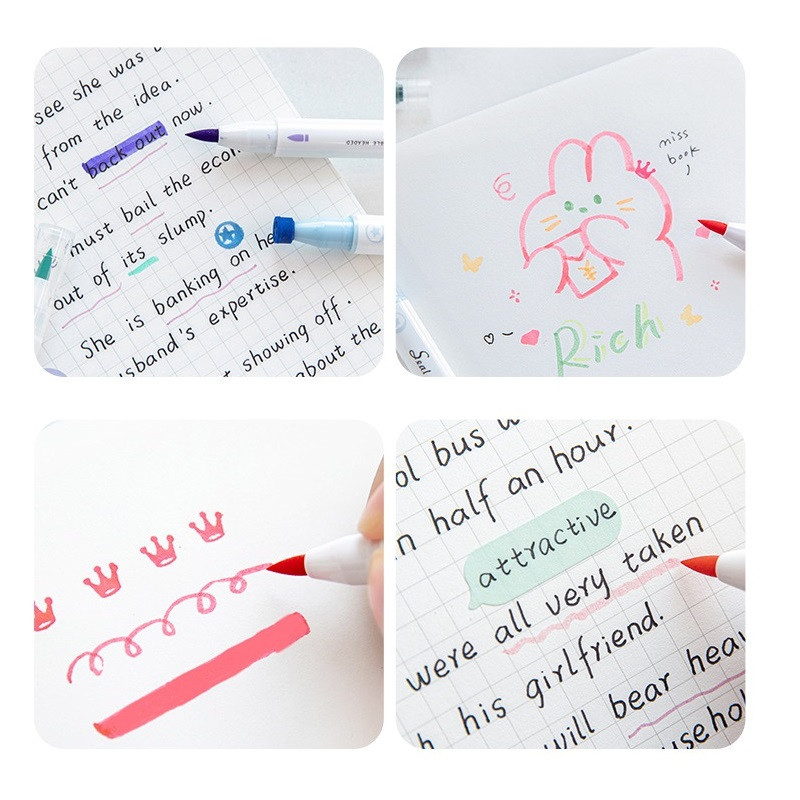 see she was
from the idea.
can't back out now.
must bail the
out of its slump.
She is banking on he
expertise.
showing off.
about the
BLE HEADED
miss
book
Rich
Seal
bus
half an hour.
attractive
were all very taken
his girlfriend.
will bear